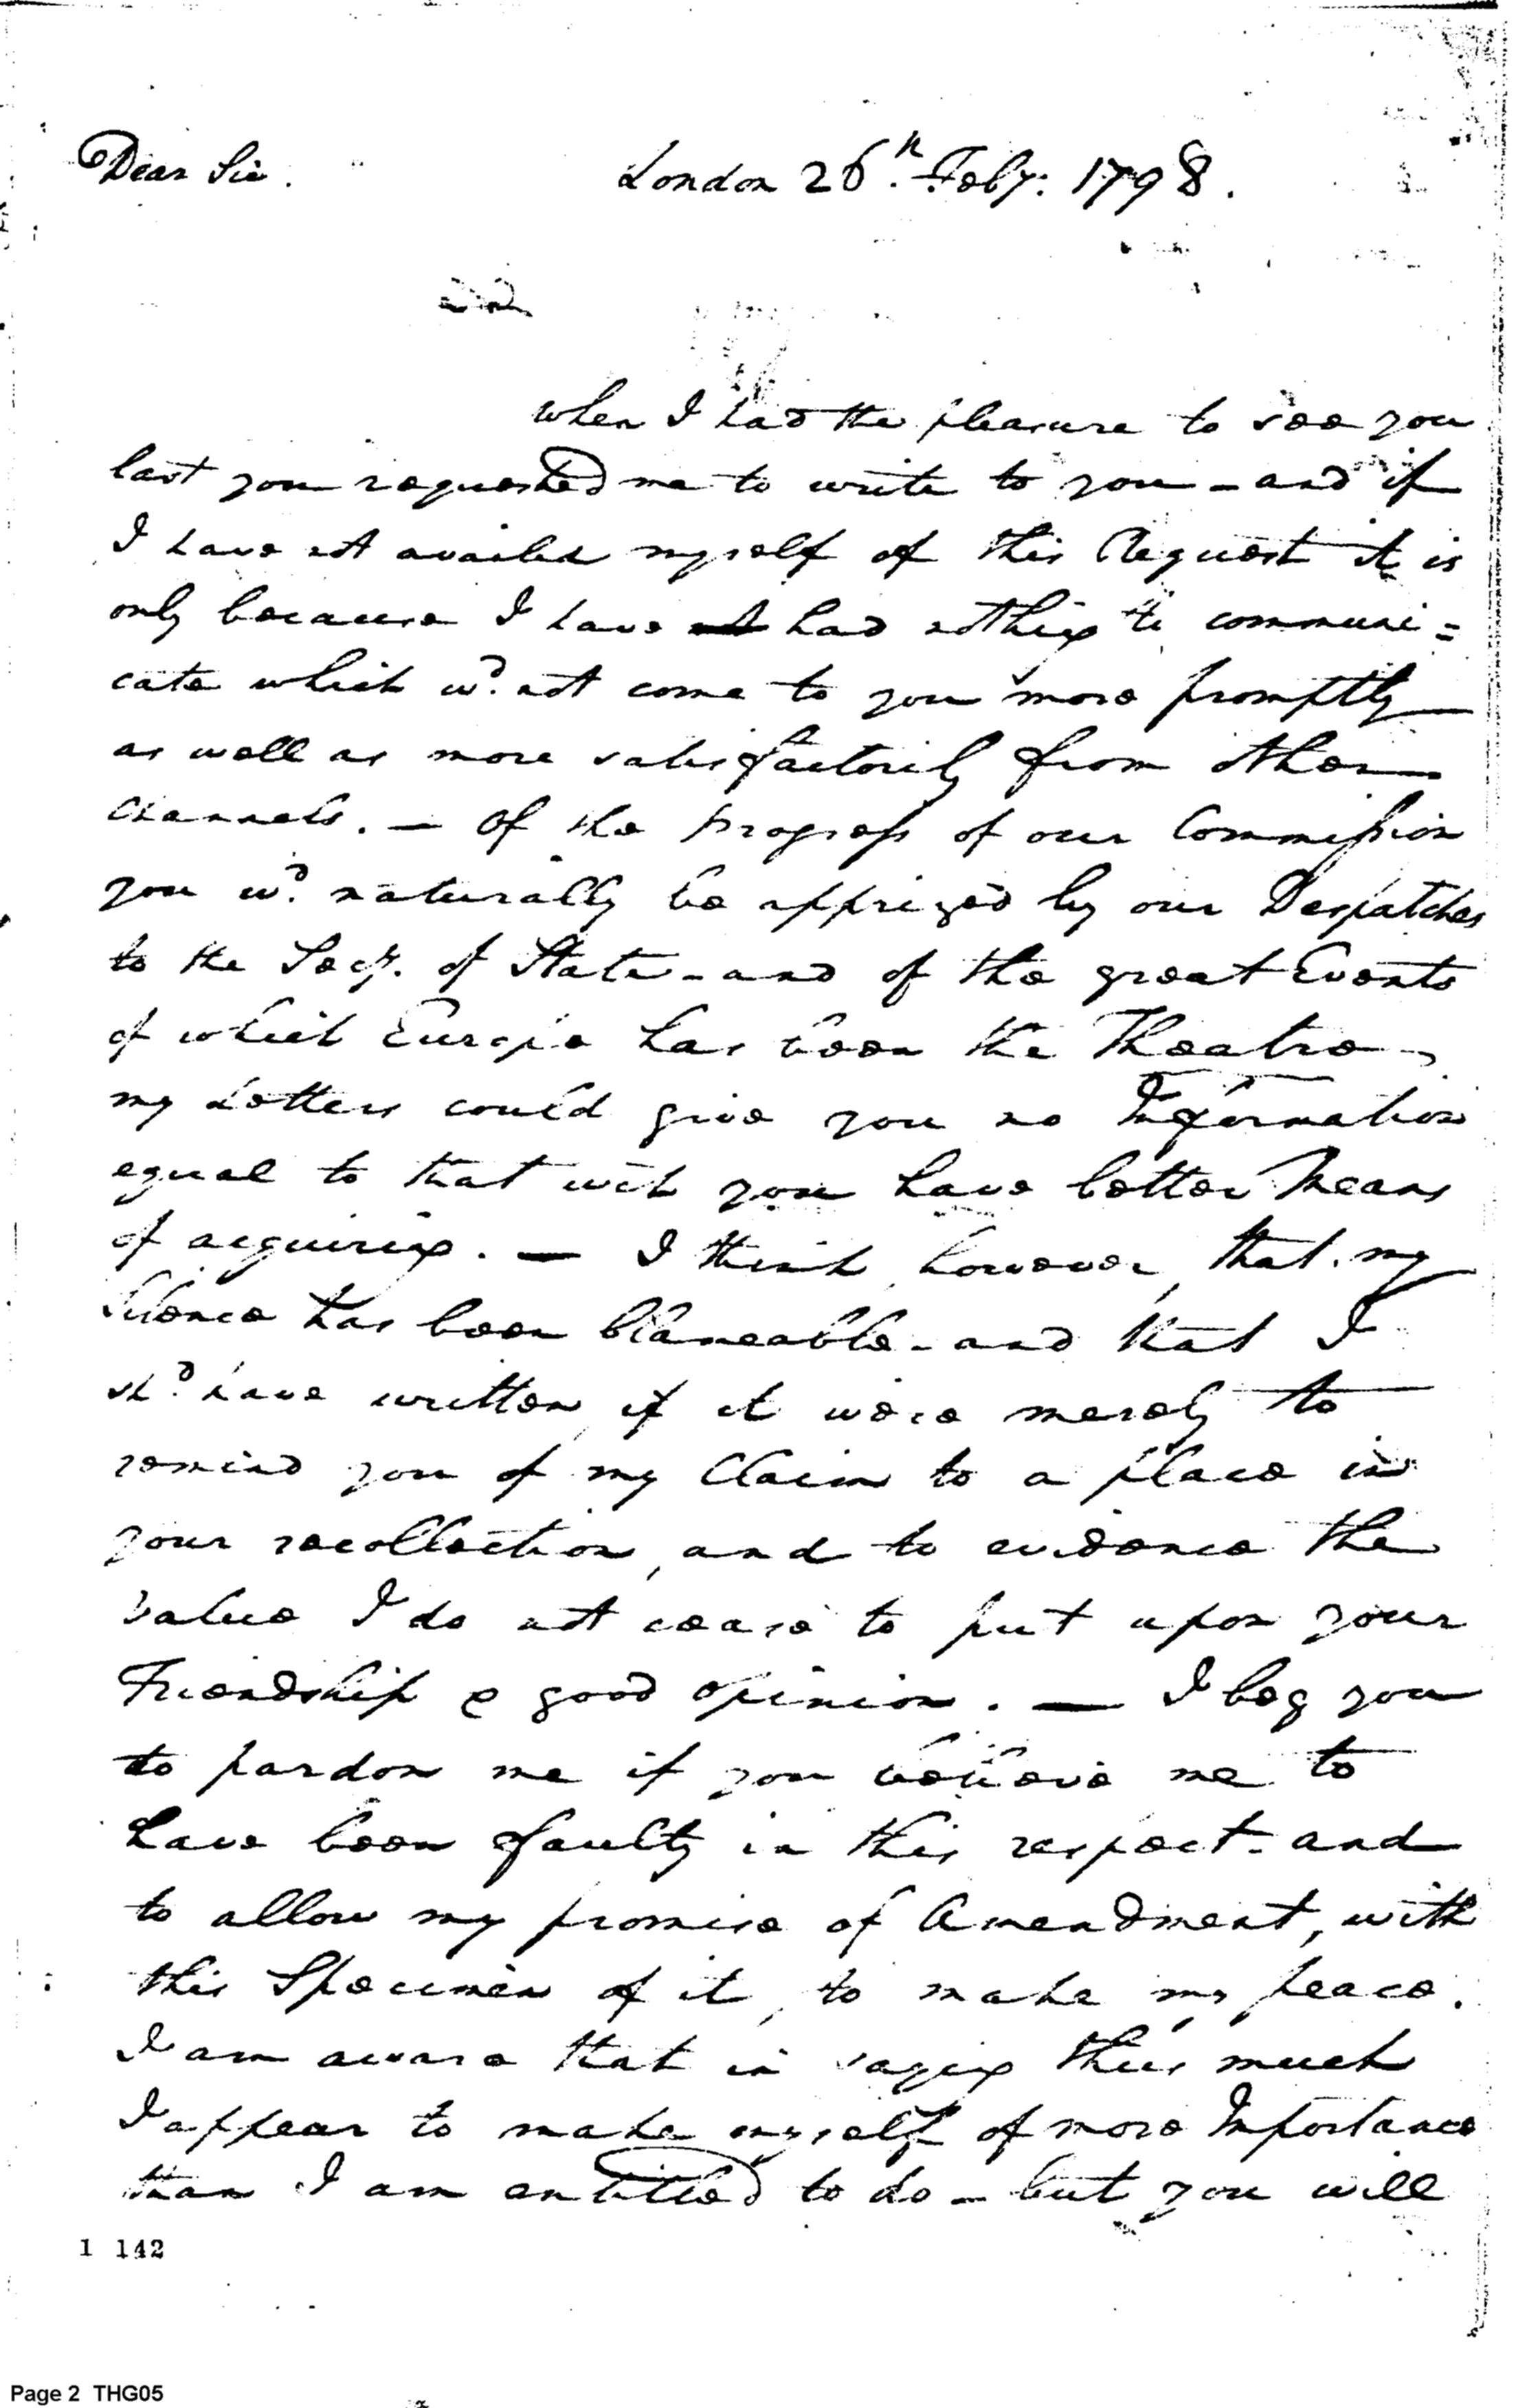 Dear Sir.
London 26th. Feby: 1798.
when I had the pleasure to see you
last you requested me to write to you – and if
I have not availed myself of this Request it is
only because I have not had nothing to communi=
cate which wd. not come to you more promptly
as well as more satisfactorily from other
Channels. — Of the Progress of our Commission
you wd. naturally be apprized by our Despatches
to the Secy. of State – and of the great Events
of which Europe has been the Theatre,
my Letters could give you no Information
equal to that wch you have better Means
of acquiring. — I think, however, that my
Silence has been blameable – and that I
shd. have written, if it were merely to
remind you of my Claim to a place in
your recollection, and to evidence the
value I do not cease to put upon your
Friendship & good opinion. — I beg you
to pardon me if you believe me to
have been faulty in this respect – and
to allow my promise of Amendment, with
this Specimen of it, to make my peace.
I am aware that in saying thus much
I appear to make myself of more Importance
than I am entitled to do – but you will
1 142
Page 2 THG05